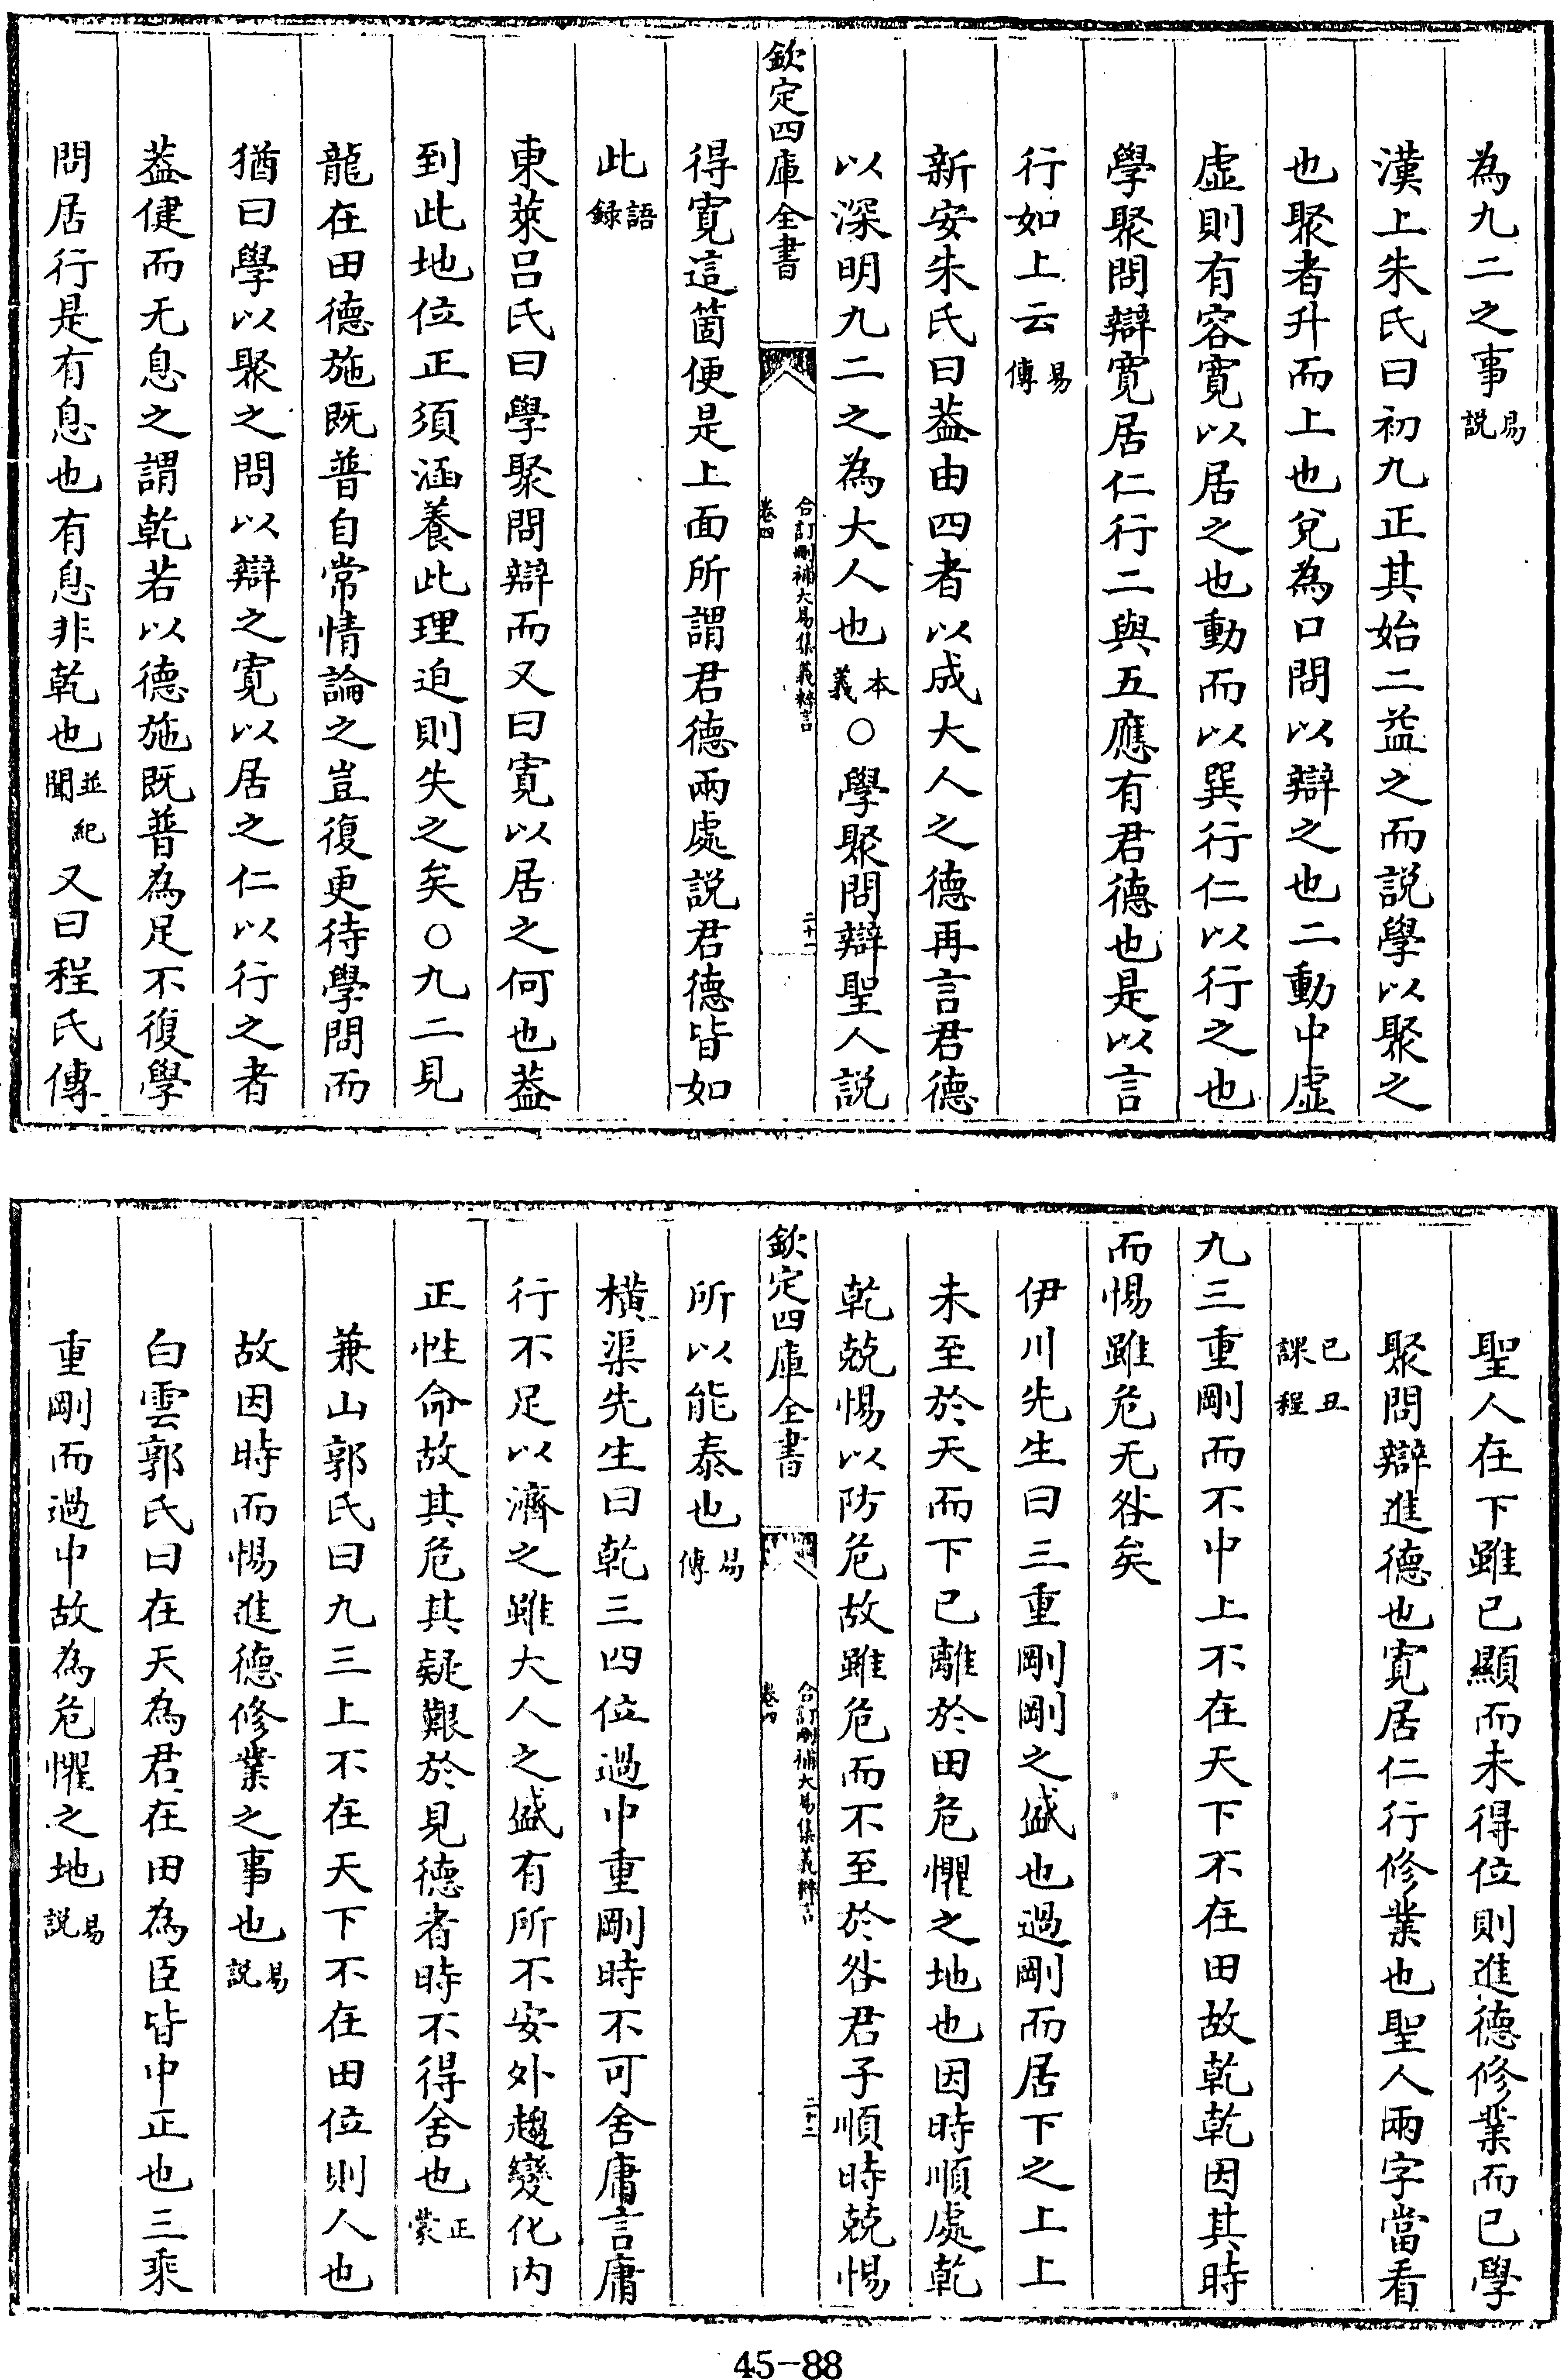 為九二之事易説
漢上朱氏曰初九正其始二益之而説學以聚之
也聚者升而上也兌為口問以辯之也二動中虛
虛則有容寛以居之也動而以巽行仁以行之也
學聚問辯寛居仁行二與五應有君德也是以言
行如上云易傳
新安朱氏曰葢由四者以成大人之德再言君德
以深明九二之為大人也本義○學聚問辯聖人説
欽定四庫全書
合訂刪補大易集義粹言
卷四
二十二
得寛這箇便是上面所謂君德兩處説君德皆如
此語録
東萊呂氏曰學聚問辯而又曰寛以居之何也葢
到此地位正須涵養此理迫則失之矣○九二見
龍在田德施既普自常情論之豈復更待學問而
猶曰學以聚之問以辯之寛以居之仁以行之者
葢健而无息之謂乾若以德施既普為足不復學
問居行是有息也有息非乾也並紀聞又曰程氏傳
聖人在下雖已顯而未得位則進德修業而已學
聚問辯進德也寛居仁行修業也聖人兩字當看
已丑課程
九三重剛而不中上不在天下不在田故乾乾因其時
而惕雖危无咎矣
伊川先生曰三重剛剛之盛也過剛而居下之上上
未至於天而下已離於田危懼之地也因時順處乾
乾兢惕以防危故雖危而不至於咎君子順時兢惕
欽定四庫全書
合訂刪補大易集義粹言
卷四
二十三
所以能泰也易傳
橫渠先生曰乾三四位過中重剛時不可舍庸言庸
行不足以濟之雖大人之盛有所不安外趨變化内
正性命故其危其疑艱於見德者時不得舍也正蒙
兼山郭氏曰九三上不在天下不在田位則人也
故因時而惕進德修業之事也易説
白雲郭氏曰在天為君在田為臣皆中正也三乘
重剛而過中故為危懼之地易説
45-88